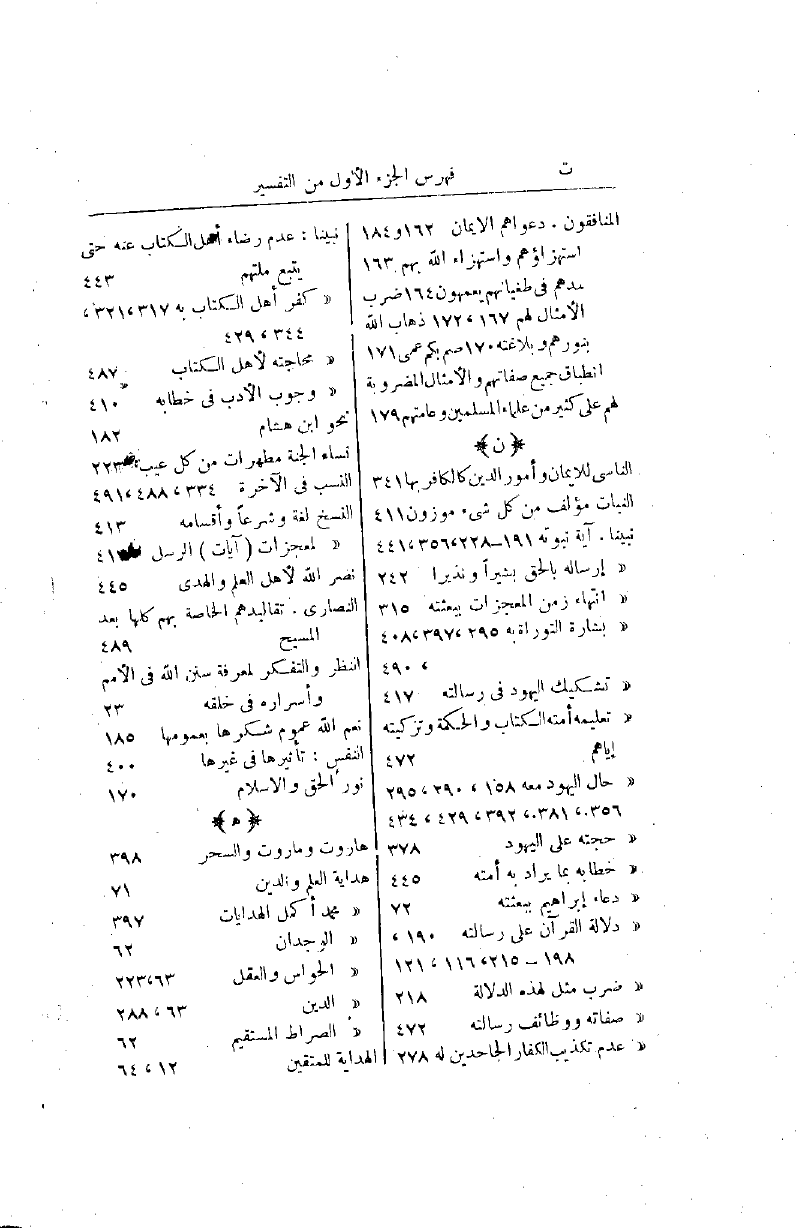 ت
فهرس الجزء الأول من التفسير
المنافقون . دعواهم الايمان ١٦٢ و١٨٤
استهزاؤهم واستهزاء الله بهم ١٦٣
مدهم فى طغيانهم يعمهون ١٦٤ ضرب
الأمثال لهم ١٦٧ ، ١٧٢ ذهاب الله
بنورهم وبلاغته ١٧٠ صم بكم عمى ١٧١
انطباق جميع صفاتهم والأمثال المضروبة
لهم على كثير من علماء المسلمين وعامتهم ١٧٩
﴿ ن ﴾
الناسى للايمان وأمور الدين كالكافر بها ٣٤١
النبات مؤلف من كل شىء موزون ٤١١
نبينا . آية نبوته ١٩١ــ٢٢٨،٣٥٦،٤٤١
« إرساله بالحق بشيراً ونذيرا ٢٤٢
« انتهاء زمن المعجزات ببعثته ٣١٥
« بشارة التوراة به ٢٩٥ ،٣٩٧،٤٠٨
، ٤٩٠
« تشكيك اليهود فى رسالته ٤١٧
« تعليمه أمته الكتاب والحكمة وتزكيته
إياهم ٤٧٢
« حال اليهود معه ١٥٨ ، ٢٩٠ ، ٢٩٥
٣٥٦، ٣٨١، ٣٩٢ ، ٤٢٩ ، ٤٣٤
« حجته على اليهود ٣٧٨
« خطابه بما يراد به أمته ٤٤٥
« دعاء إبراهيم ببعثته ٧٢
« دلالة القرآن على رسالته ١٩٠ ،
١٩٨ ــ ٢١٥، ١١٦ ، ١٢١
« ضرب مثل لهذه الدلالة ٢١٨
« صفاته ووظائف رسالته ٤٧٢
« عدم تكذيب الكفار الجاحدين له ٢٧٨
نبينا : عدم رضاء أهل الكتاب عنه حتى
يتبع ملتهم ٤٤٣
« كفر أهل الكتاب به ٣١٧،٣٢١ ،
٣٤٤ ، ٤٢٩
« محاجته لأهل الكتاب ٤٨٧
« وجوب الأدب فى خطابه ٤١٠
نحو ابن هشام ١٨٢
نساء الجنة مطهرات من كل عيب ٢٢٣
النسب فى الآخرة ٣٣٤ ، ٤٨٨ ،٤٩١
النسخ لغة وشرعاً وأقسامه ٤١٣
« لمعجزات ( آيات ) الرسل
نصر الله لأهل العلم والهدى ٤٤٥
النصارى . تقاليدهم الخاصة بهم كلها بعد
المسيح ٤٨٩
النظر والتفكر لمعرفة سنن الله فى الأمم
وأسراره فى خلقه ٢٣
نعم الله عموم شكرها بعمومها ١٨٥
النفس : تأثيرها فى غيرها ٤٠٠
نور الحق والاسلام ١٧٠
﴿ ه ﴾
هاروت وماروت والسحر ٣٩٨
هداية العلم والدين ٧١
« محمد أكمل الهدايات ٣٩٧
« الوجدان ٦٢
« الحواس والعقل ٦٣،٢٢٣
« الدين ٦٣ ، ٢٨٨
« الصراط المستقيم ٦٢
الهداية للمتقين ١٢ ، ٦٤